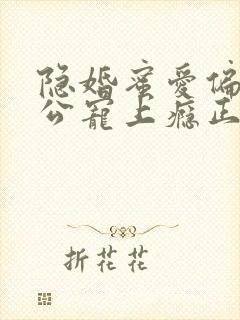 隐婚蜜爱偏
公宠上瘾正
折花花